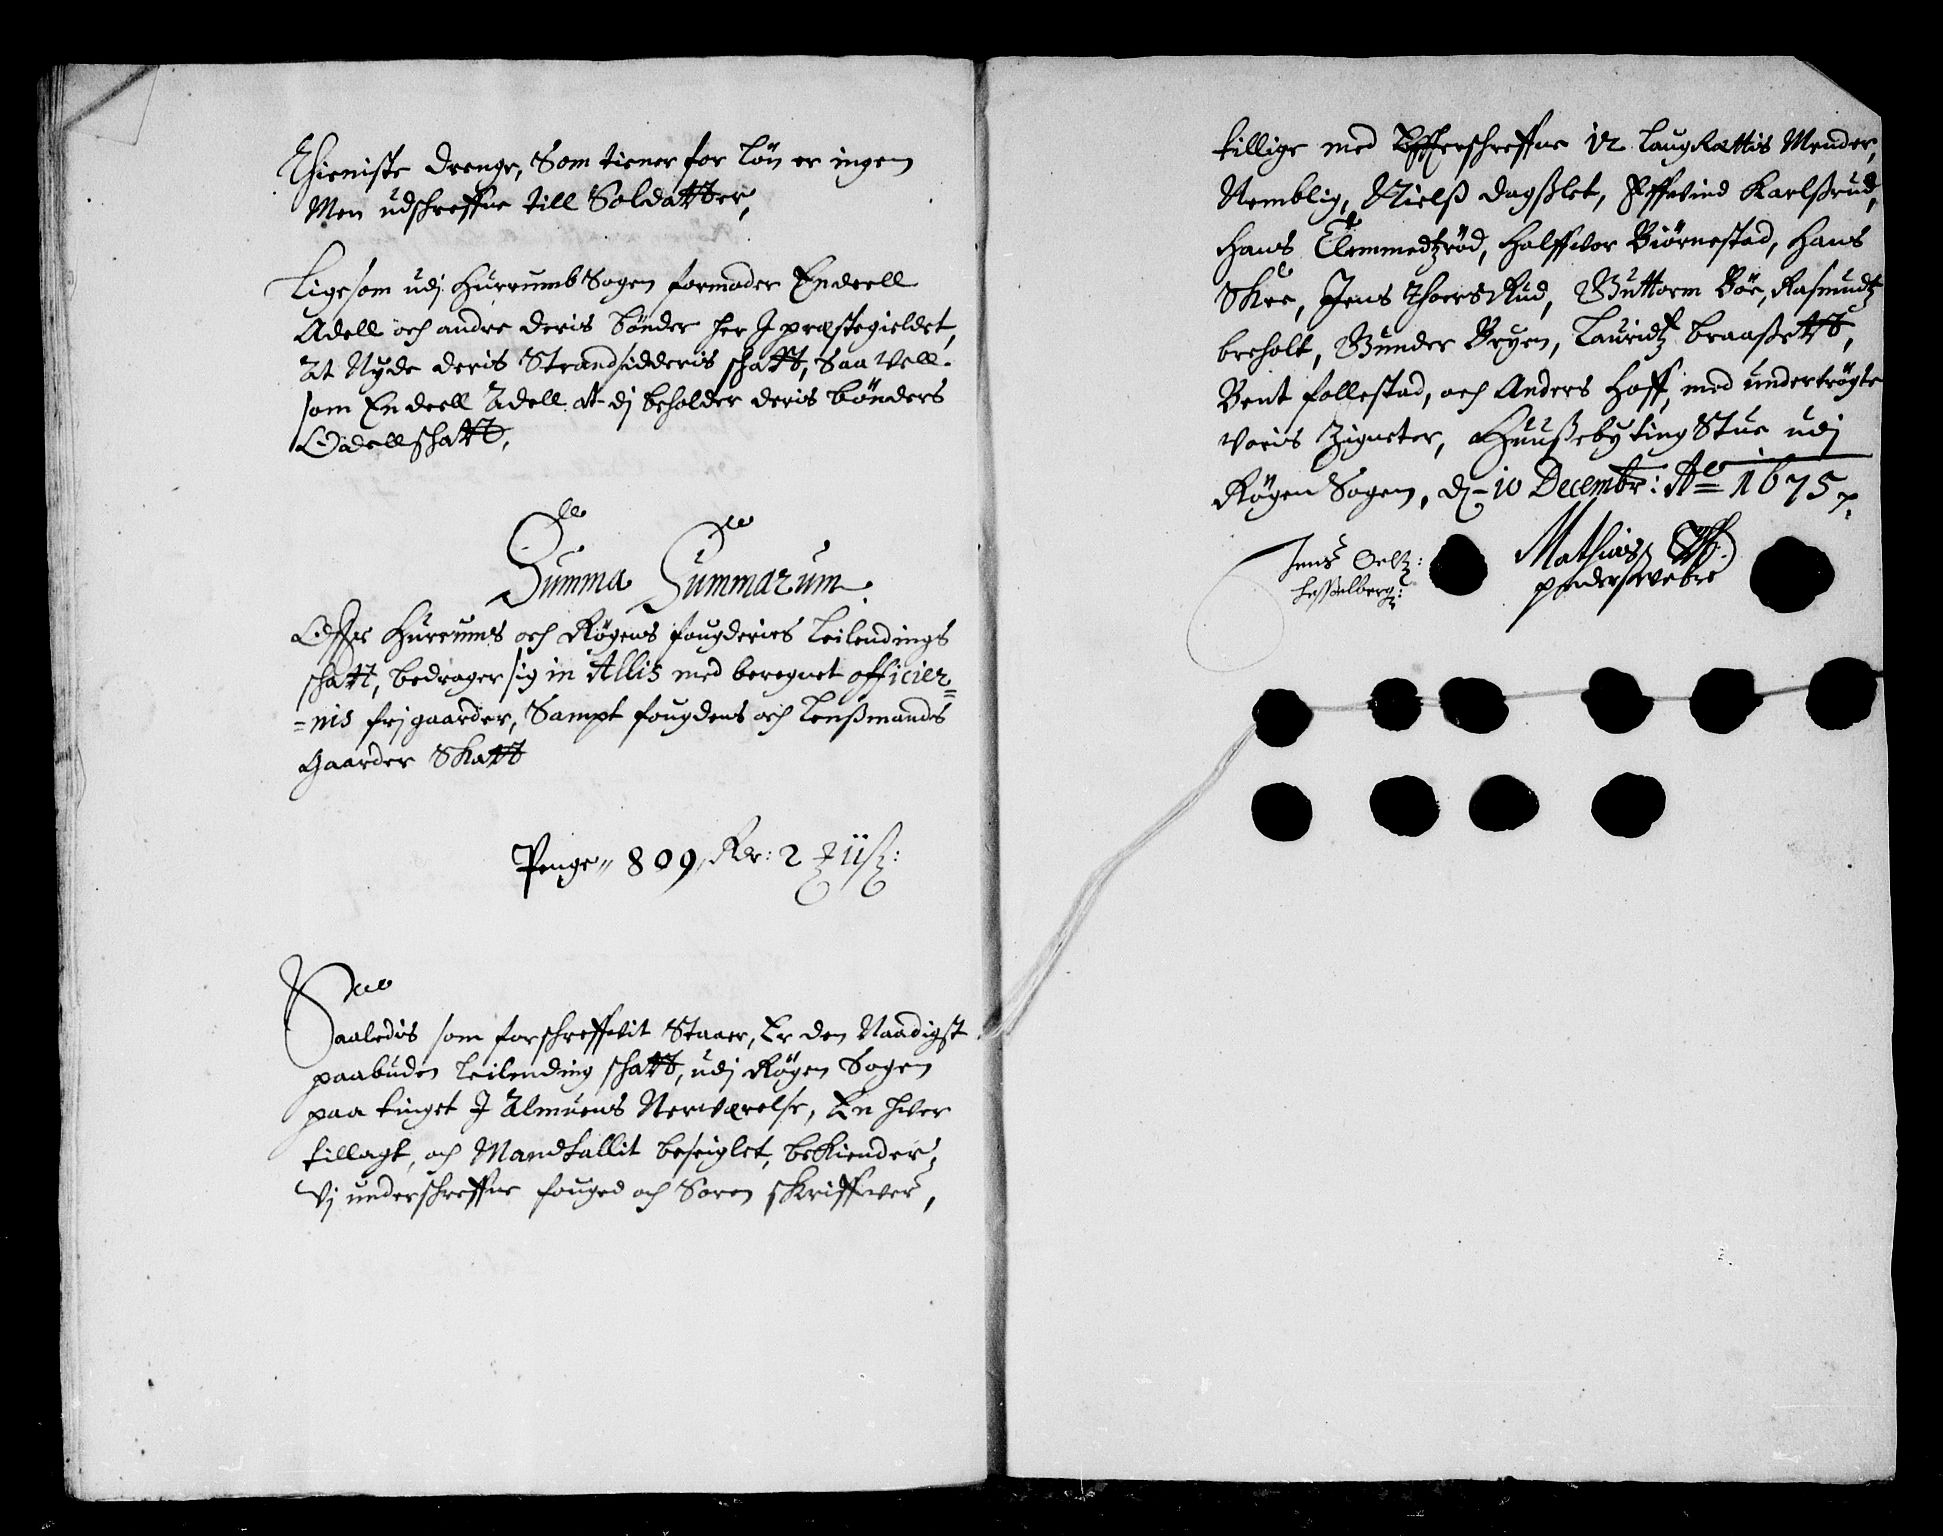 Thieniste drenge, Som tiener for løn er ingen
Men udschreffne till Soldatter,
Ligesom udj Hurrumb Sogen formoder Endeell
Adell och andre deris bønder her J præstegieldet,
At Nyde deris Strandsidderis schatt, Saa vell
som Endeell Adell at dj beholder deris bønders
Odellschatt,
Summa Summarum
Offr Hurrums och Røgens fougderies Leilendings
schatt, bedrager sig in Allis med beregnet officier=
=nis frj gaarder, Sampt fougdens och Lenßmands
Gaarder Skatt
Penge 809 Rdr: 2 11 ß:
Saaledis som forschreffvit Staaer, Er den Naadigst
paabuden Leilending schatt, udj Røgen Sogen
paa tinget J Almuens Nerværelse, En hver
tillagt, och Mandtallit beseiglet, bekiender,
Vj underschreffne fouged och Soren skriffver,
tillige med Effterschreffne 12 Laugrettis Mender,
Nemblig, Nielß dagßlet, Effvind Karlßrud,
Hans Clemmedtzrød, Halffvor Biørnestad, Hans
Skee, Jens Thorsrud, Guttorm Bøe, Rasmudtz
breholt, Gunder Bryen, Lauridtz braaßett,
Bent follestad, och Anders Hoff, med undertrøgte
voris Zigneter, Huußeby ting Stue udj
Røgen Sogen, d 10 Decembr: Ao 1675
Jens Oelß:
Heßelberg:
Mathias